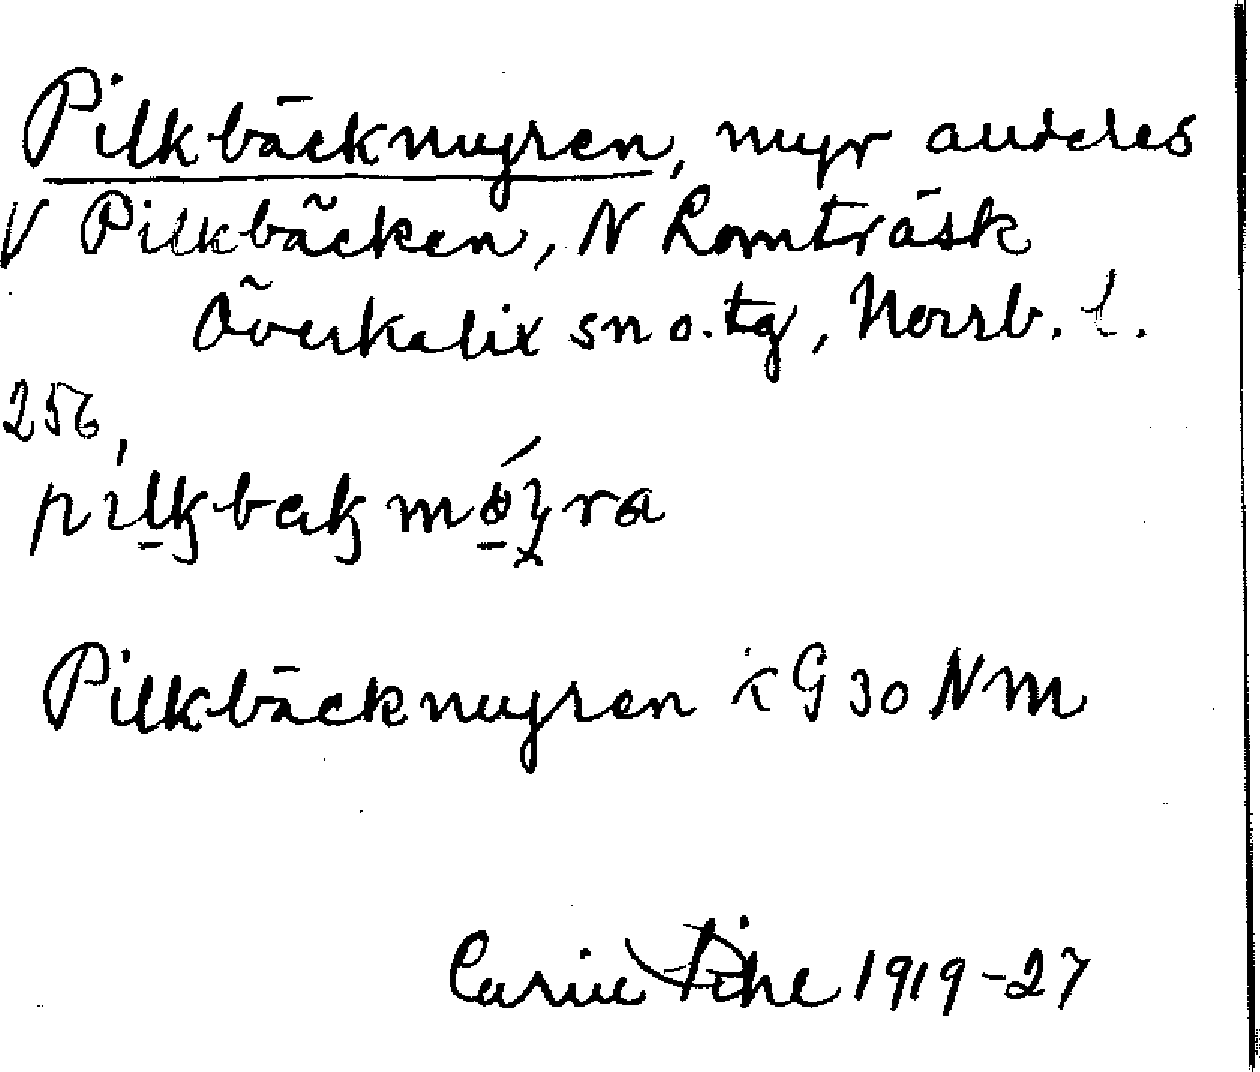 Pilkbäckmyren, myr alldeles
V Pilkbäcken, N Lomträsk
Överkalix sn o. tg, Norrb. l.
256,
pilkbakmöyra
Pilkbäckmyren k G 30 NM
Carin Pihl 1919-27